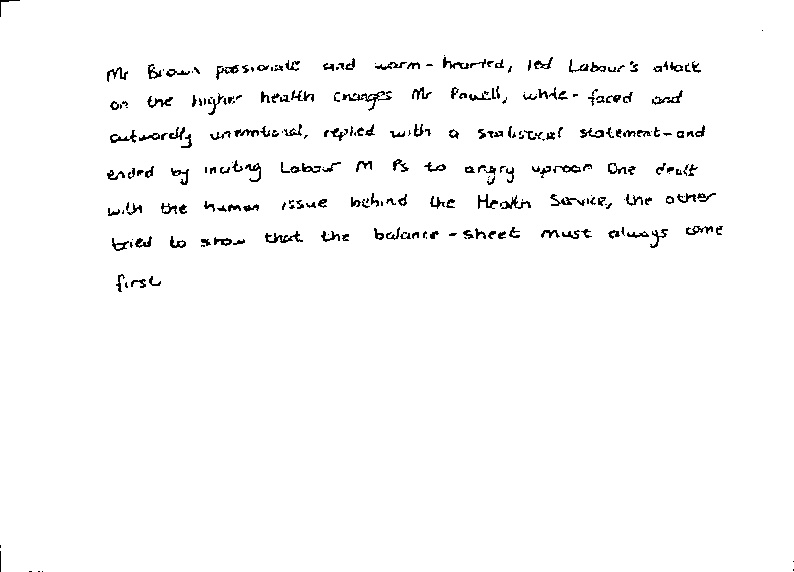 Mr Brown passionate and warm-hearted, led Labour's attack
on the higher health charges Mr Powell, white-faced and
outwardly unemotional, replied with a statistical statement-and
ended by inciting Labour M Ps to angry uproar One dealt
with the human issue behind the Health Service, the other
tried to show that the balance-sheet must always come
first